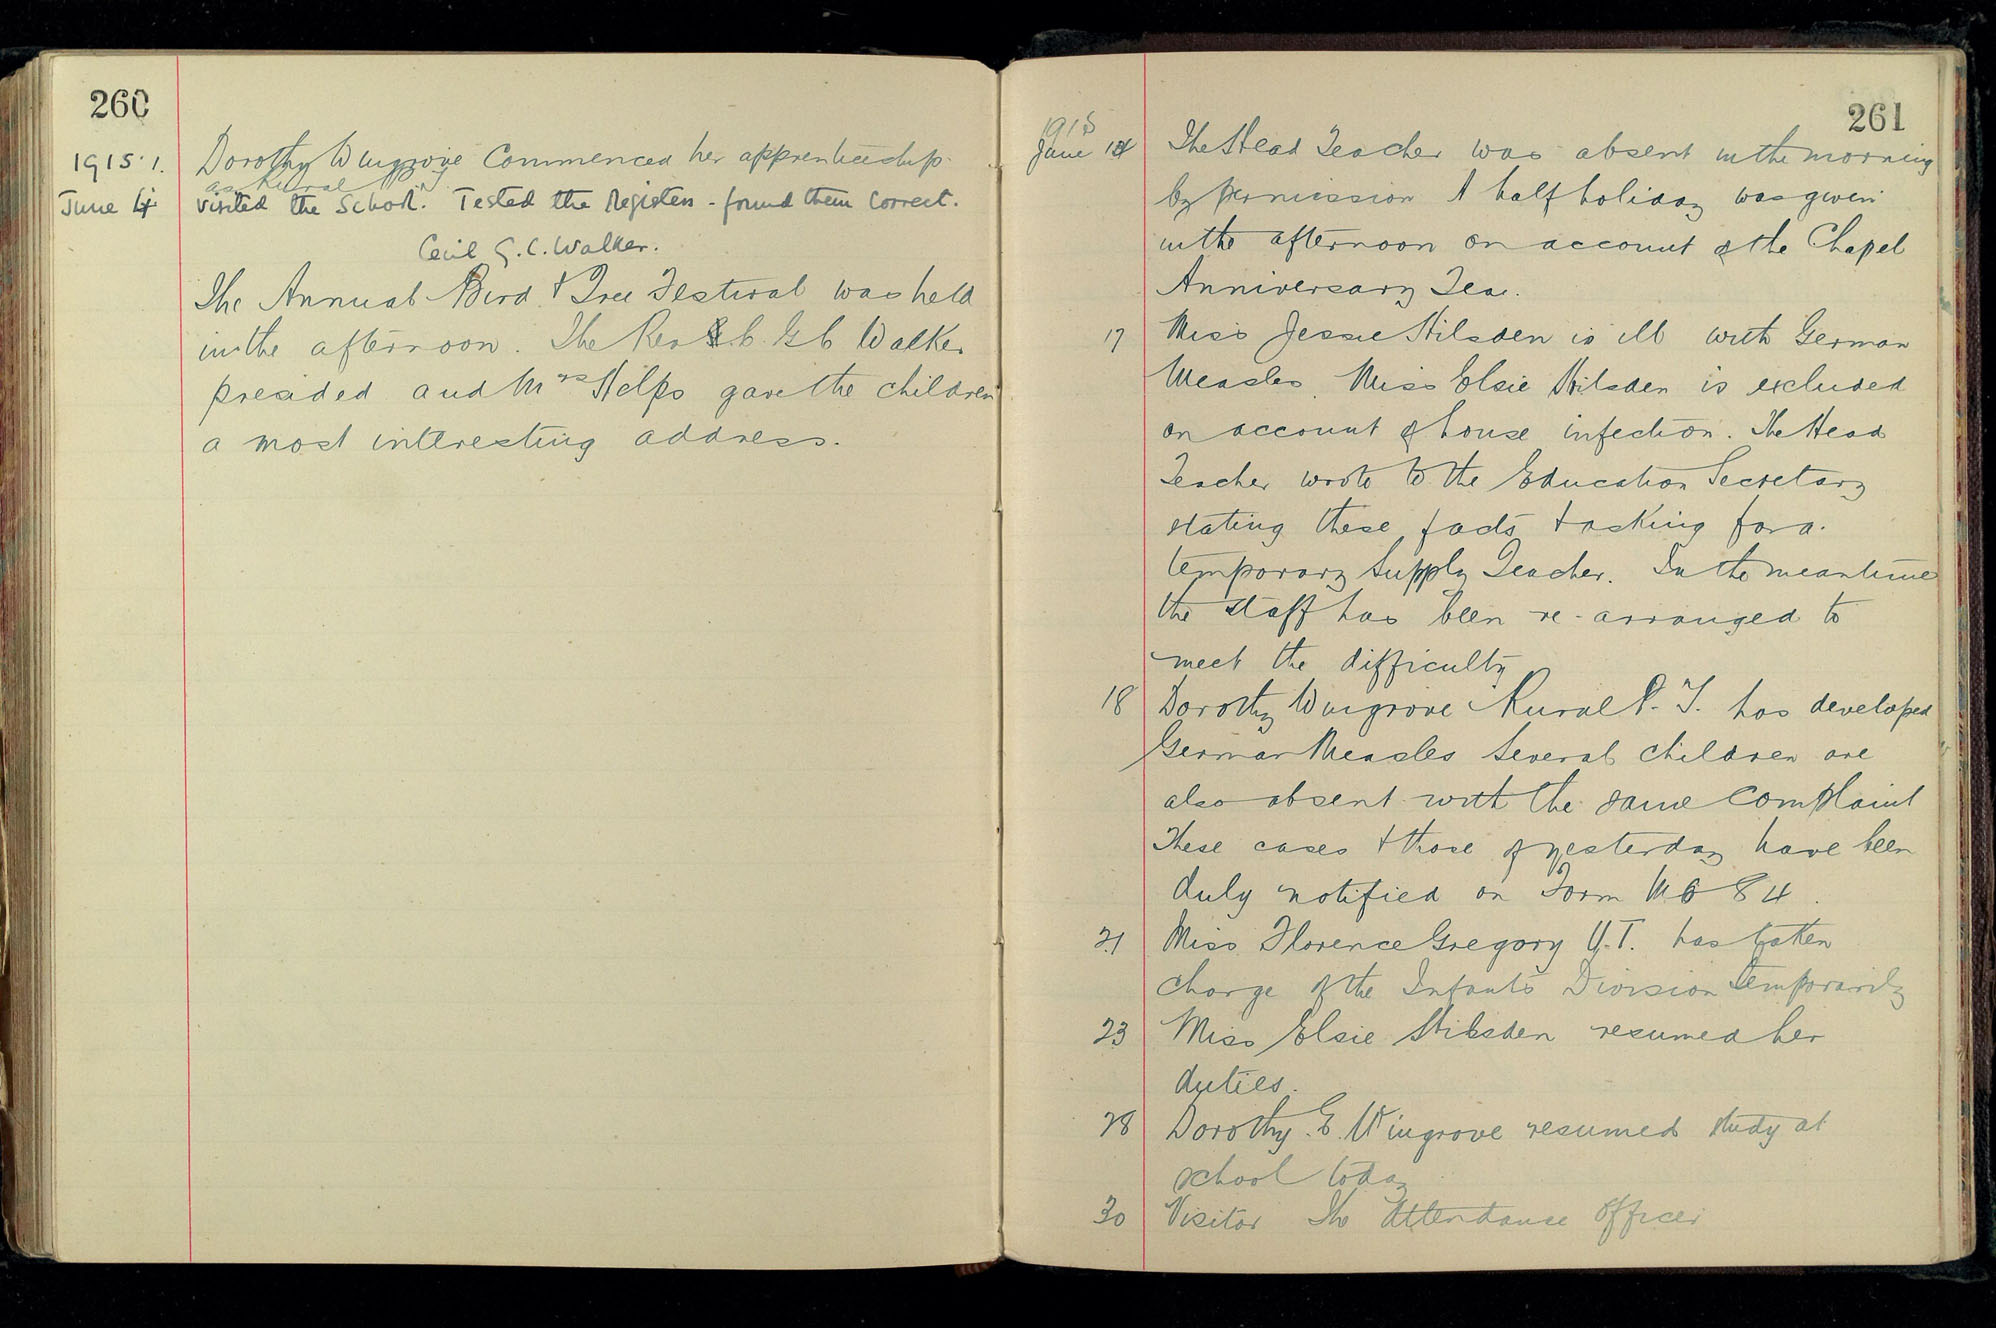 260
1915. 1. Dorothy Wingrove Commenced her apprenticeship.
as Rural
June 4 visited the School. Tested the Registers - found them correct.
Cecil G. C. Walker.
The Annual Bird & Tree Festival was held
in the afternoon. The Rev C. G C Walker
presided and Mrs Helps gave the children
a most interesting address.
261
1915
June 14 The Head Teacher was absent in the morning
by permission A half holiday was given
in the afternoon on account of the Chapel
Anniversary Tea.
17 Miss Jessie Hilsden is ill with German
Measles. Miss Elsie Hilsden is excluded
on account of house infection. The Head
Teacher wrote to the Education Secretary
stating these facts & asking for a
temporary Supply Teacher. In the meantime
the staff has been re-arranged to
meet the difficulty
18 Dorothy Wingrove Rural P. T. has developed
German Measles Several children are
also absent with the same complaint
These cases & those of yesterday have been
duly notified on Form M O 84.
21 Miss Florence Gregory U.T. has taken
charge of the Infants Division temporarily
23 Miss Elsie Hilsden resumed her
duties.
28 Dorothy. E. Wingrove resumed study at
school today
30 Visitor The Attendance Officer